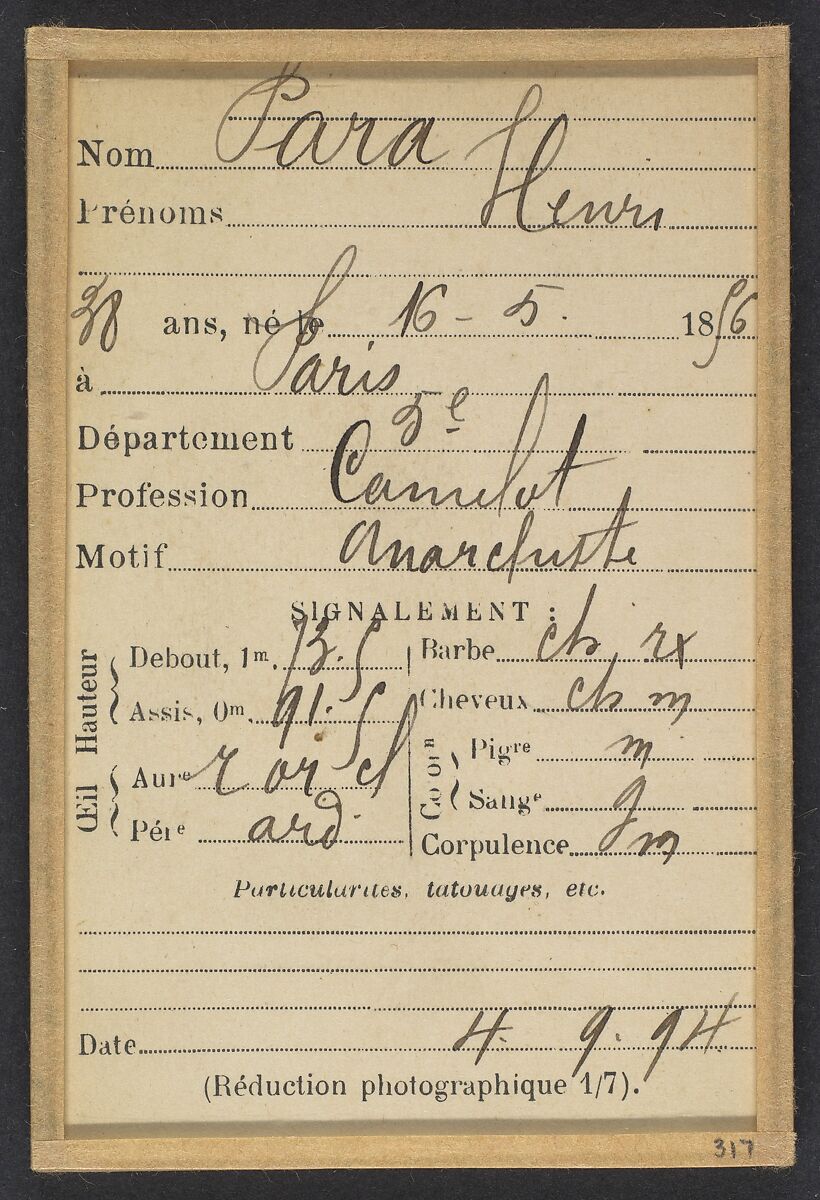 Nom Para
Prénoms Henri
38 ans, né le 16 - 5. 1856
à Paris
Département 5e
Profession Camelot
Motif Anarchiste
SIGNALEMENT :
Hauteur
Debout, 1m. 73.5
Assis, 0m. 91.5
Œil
Aure r or cl
Pére ard.
Barbe ch. rx
Cheveux ch m
Coloron
Pigre m
Sange g
Corpulence m
Particularités, tatouages, etc.
Date 4. 9. 94
(Réduction photographique 1/7).
317